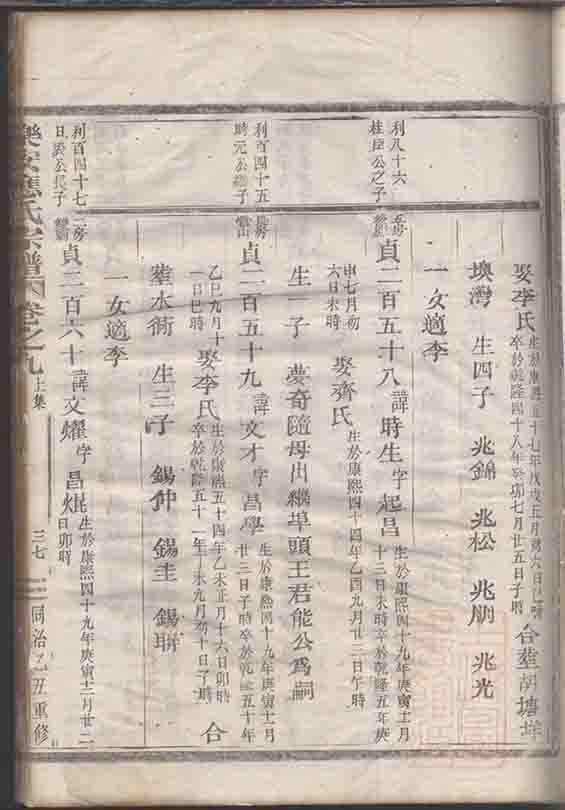 娶李氏生於康熙五十七年戊戌五月初六日巳時卒於乾隆四十八年癸卯七月廿五日子時合塟胡塘垾
墺灣 生四子 兆錦 兆松 兆朋 兆光
一女適李
利八十六五房桂臣公之子
貞二百五十八諱時生字起昌生於康熙四十九年庚寅十一月十三日未時卒於乾隆五年庚
申七月初六日未時 娶齊氏生於康熙四十四年乙酉九月廿三日午時
生一子 夢奇隨母出繼埠頭王君能公爲嗣
利百四十五長房時元公繼子
貞二百五十九諱文才字昌學生於康熙四十九年庚寅十二月廿三日子時卒於乾隆五十年
乙巳九月十一日巳時 娶李氏生於康熙五十四年乙未正月十六日卯時卒於乾隆五十二年丁未九月初十日子時 合
塟水衕 生三子 錫仲 錫圭 錫聯
一女適李
利百四十七二房日公長子
貞二百六十諱文燿字昌焜生於康熙四十九年庚寅十二月廿二日卯時
樂安應氏宗譜 卷之九上集 三七 同治乙丑重修